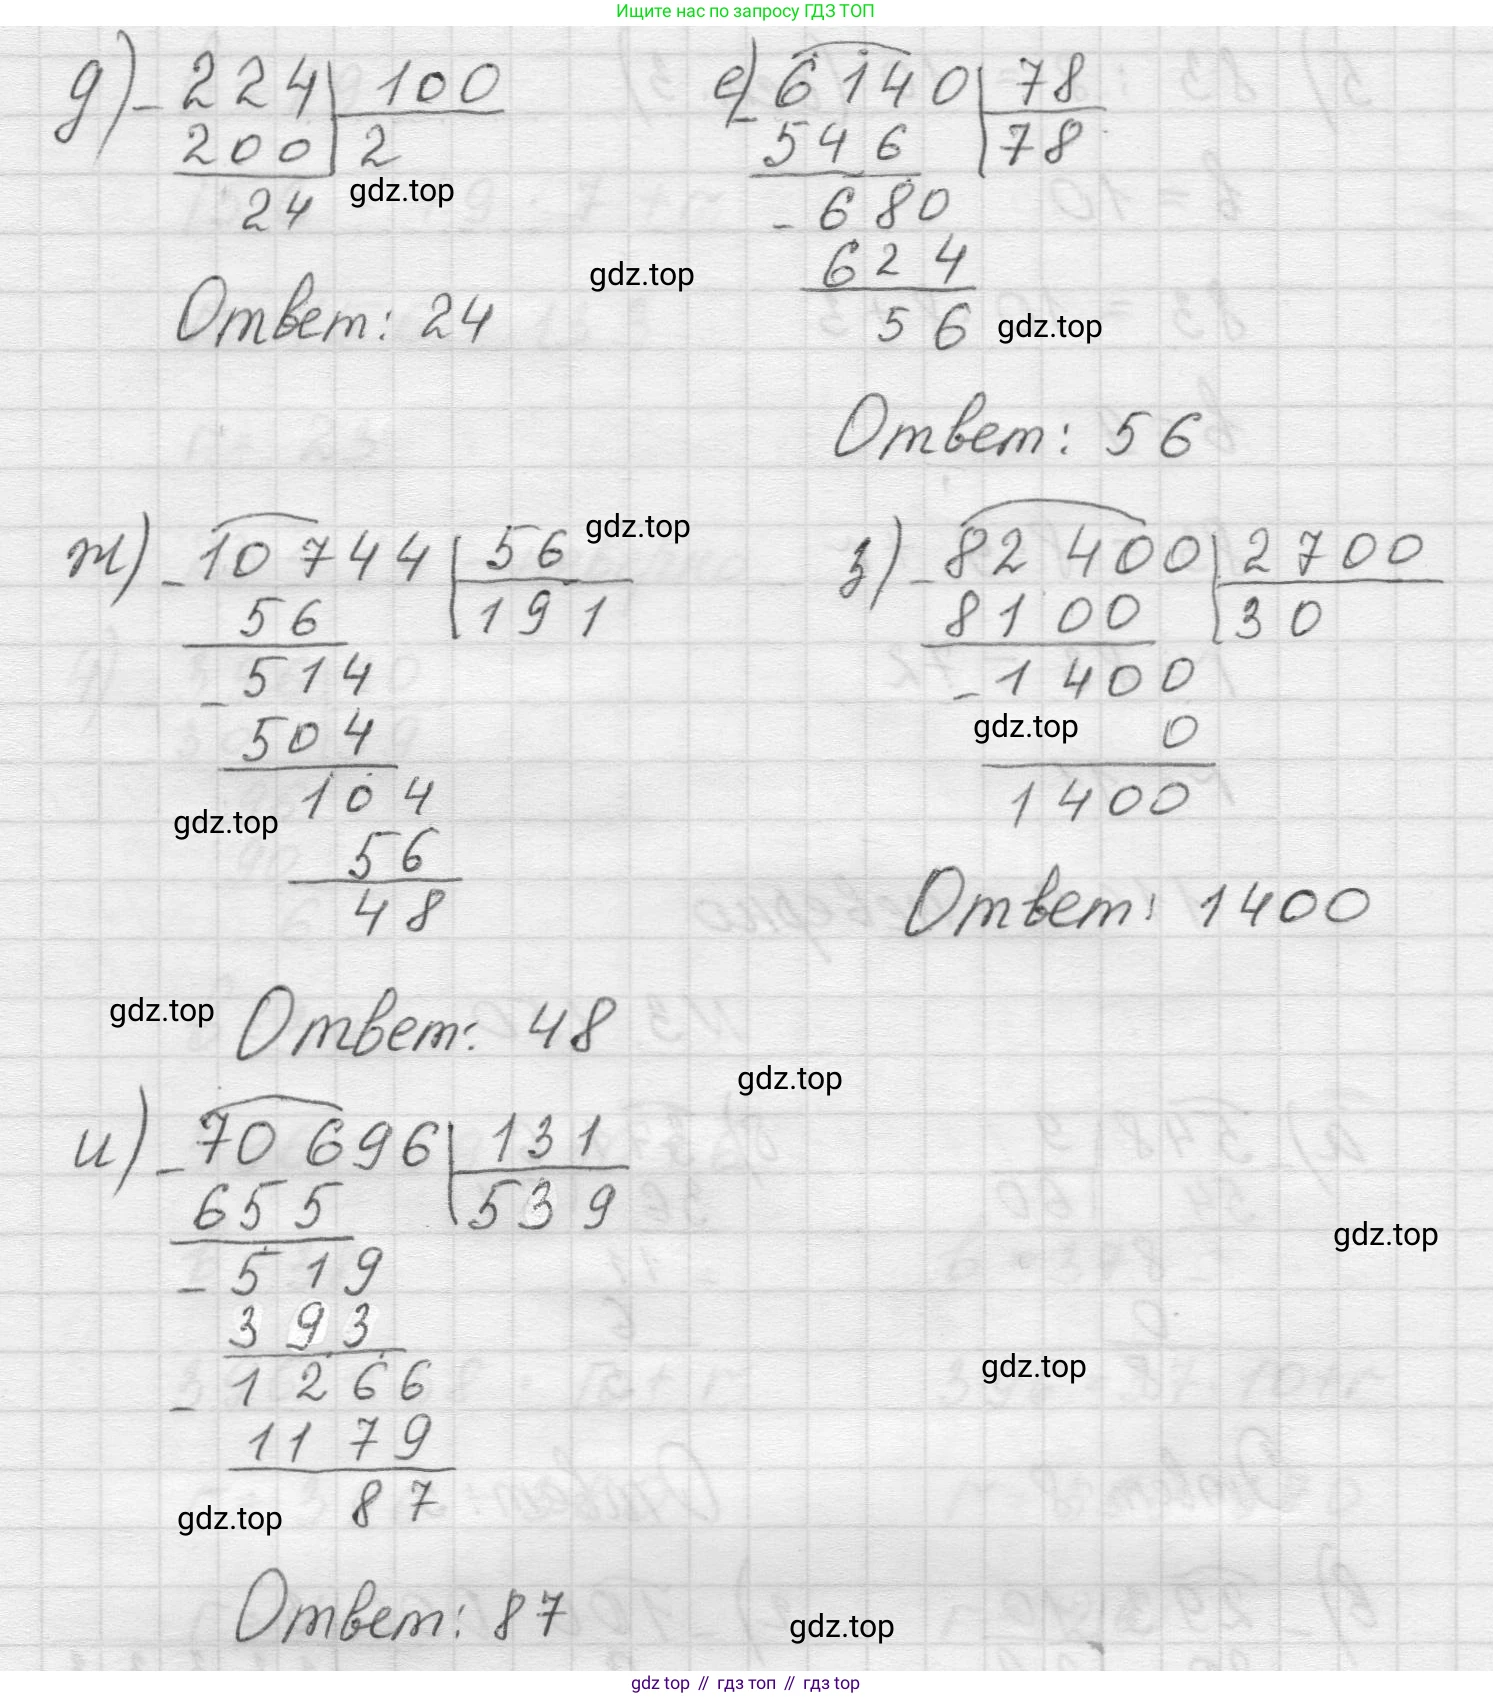 Ищите нас по запросу ГДЗ ТОП
д) - 224 | 100
200 | 2
24
gdz.top
Ответ: 24
gdz.top
е) - 6140 | 78
546 | 78
- 680
624
56
gdz.top
Ответ: 56
ж) - 10744 | 56
gdz.top
56 | 191
- 514
504
104
gdz.top
56
48
gdz.top
Ответ: 48
з) - 82400 | 2700
8100 | 30
- 1400
gdz.top
0
1400
Ответ: 1400
gdz.top
и) - 70696 | 131
655 | 539
- 519
393
- 1266
1179
87
gdz.top
gdz.top
gdz.top
Ответ: 87
gdz.top
gdz top // гдз топ // гдз top